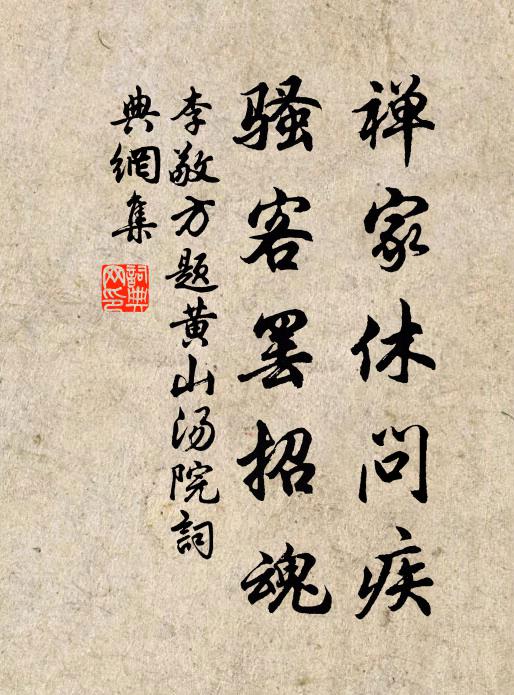 禅家休问疾
骚客罢招魂
李敬方题黄山汤院詞
典網集
詞典網印